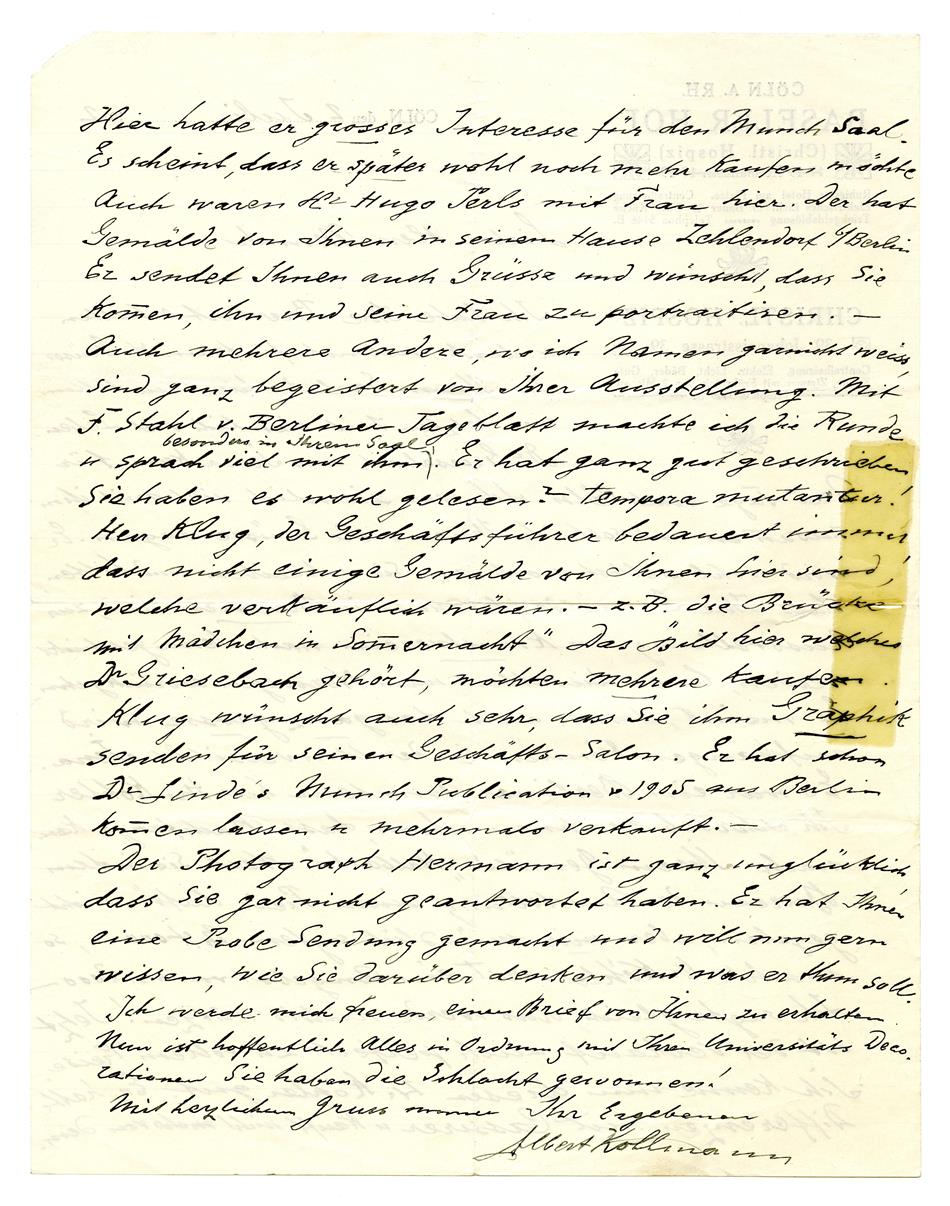 Hier hatte er grosses Interesse für den Munch Saal.
Es scheint, dass er später wohl noch mehr kaufen möchte
Auch waren Hr Hugo Perls mit Frau hier. Der hat
Gemälde von Ihnen in seinem Hause Zehlendorf b/Berlin
Er sendet Ihnen auch Grüsse und wünscht, dass Sie
kom̄en, ihn und seine Frau zu portraitiren. —
Auch mehrere Andere, wo ich Namen garnicht weiss,
sind ganz begeistert von Ihrer Ausstellung. Mit
F. Stahl v. Berliner Tageblatt machte ich die Runde
besonders in Ihrem Saal
u sprach viel mit ihm. Er hat ganz gut geschrieben
Sie haben es wohl gelesen? – tempora mutantur!
Herr Klug, der Geschäftsführer bedauert immer
dass nicht einige Gemälde von Ihnen hier sind,
welche verkäuflich wären. – z.B. die Brücke
mit Mädchen in Som̄ernacht" Das Bild hier welches
Dr Griesebach gehört, möchten mehrere kaufen.
Klug wünscht auch sehr, dass Sie ihm Graphik
senden für seinen Geschäfts-Salon. Er hat schon
Dr Linde's Munch Publication v 1905 aus Berlin
kom̄en lassen u mehrmals verkauft. —
Der Photograph Hermann ist ganz unglücklich
dass Sie gar nicht geantwortet haben. Er hat Ihnen
eine Probe Sendung gemacht und will nun gern
wissen, wie Sie darüber denken und was er thum soll.
Ich werde mich freuen, einen Brief von Ihnen zu erhalten
Nun ist hoffentlich Alles in Ordnung mit Ihren Universitäts Deco-
rationen Sie haben die Schlacht gewonnen!
Mit herzlichem Gruss immer Ihr Ergebener
Albert Kollmann